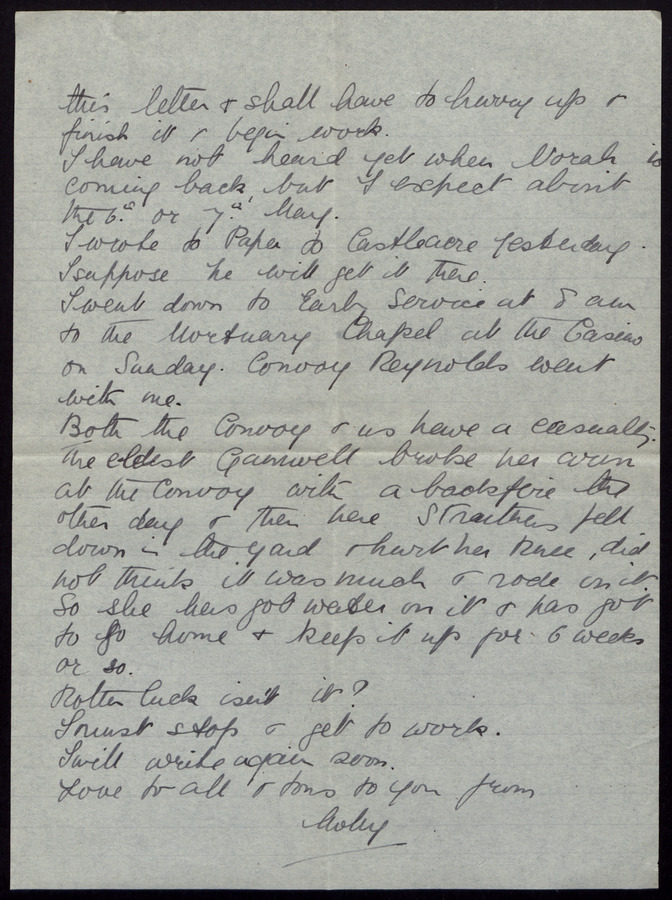 this letter & shall have to hurry up &
finish it & begin work.
I have not heard yet when Norah is
coming back but I expect about
the 6th or 7th May.
I wrote to Papa to Castleacre yesterday.
I suppose he will get it there.
I went down to Early Service at 8 am
to the Mortuary Chapel at the Casino
on Sunday. Convoy Reynolds went
with me.
Both the Convoy & us have a casualty.
The eldest Gamwell broke her arm
at the Convoy with a backfire the
other day & then here Struthers fell
down in the yard & hurt her knee, did
not think it was much & rode on it
So she has got water on it & has got
to go home & keep it up for 6 weeks
or so.
Rotten luck isn't it?
I must stop & get to work.
I will write again soon.
Love to all & tons to you from